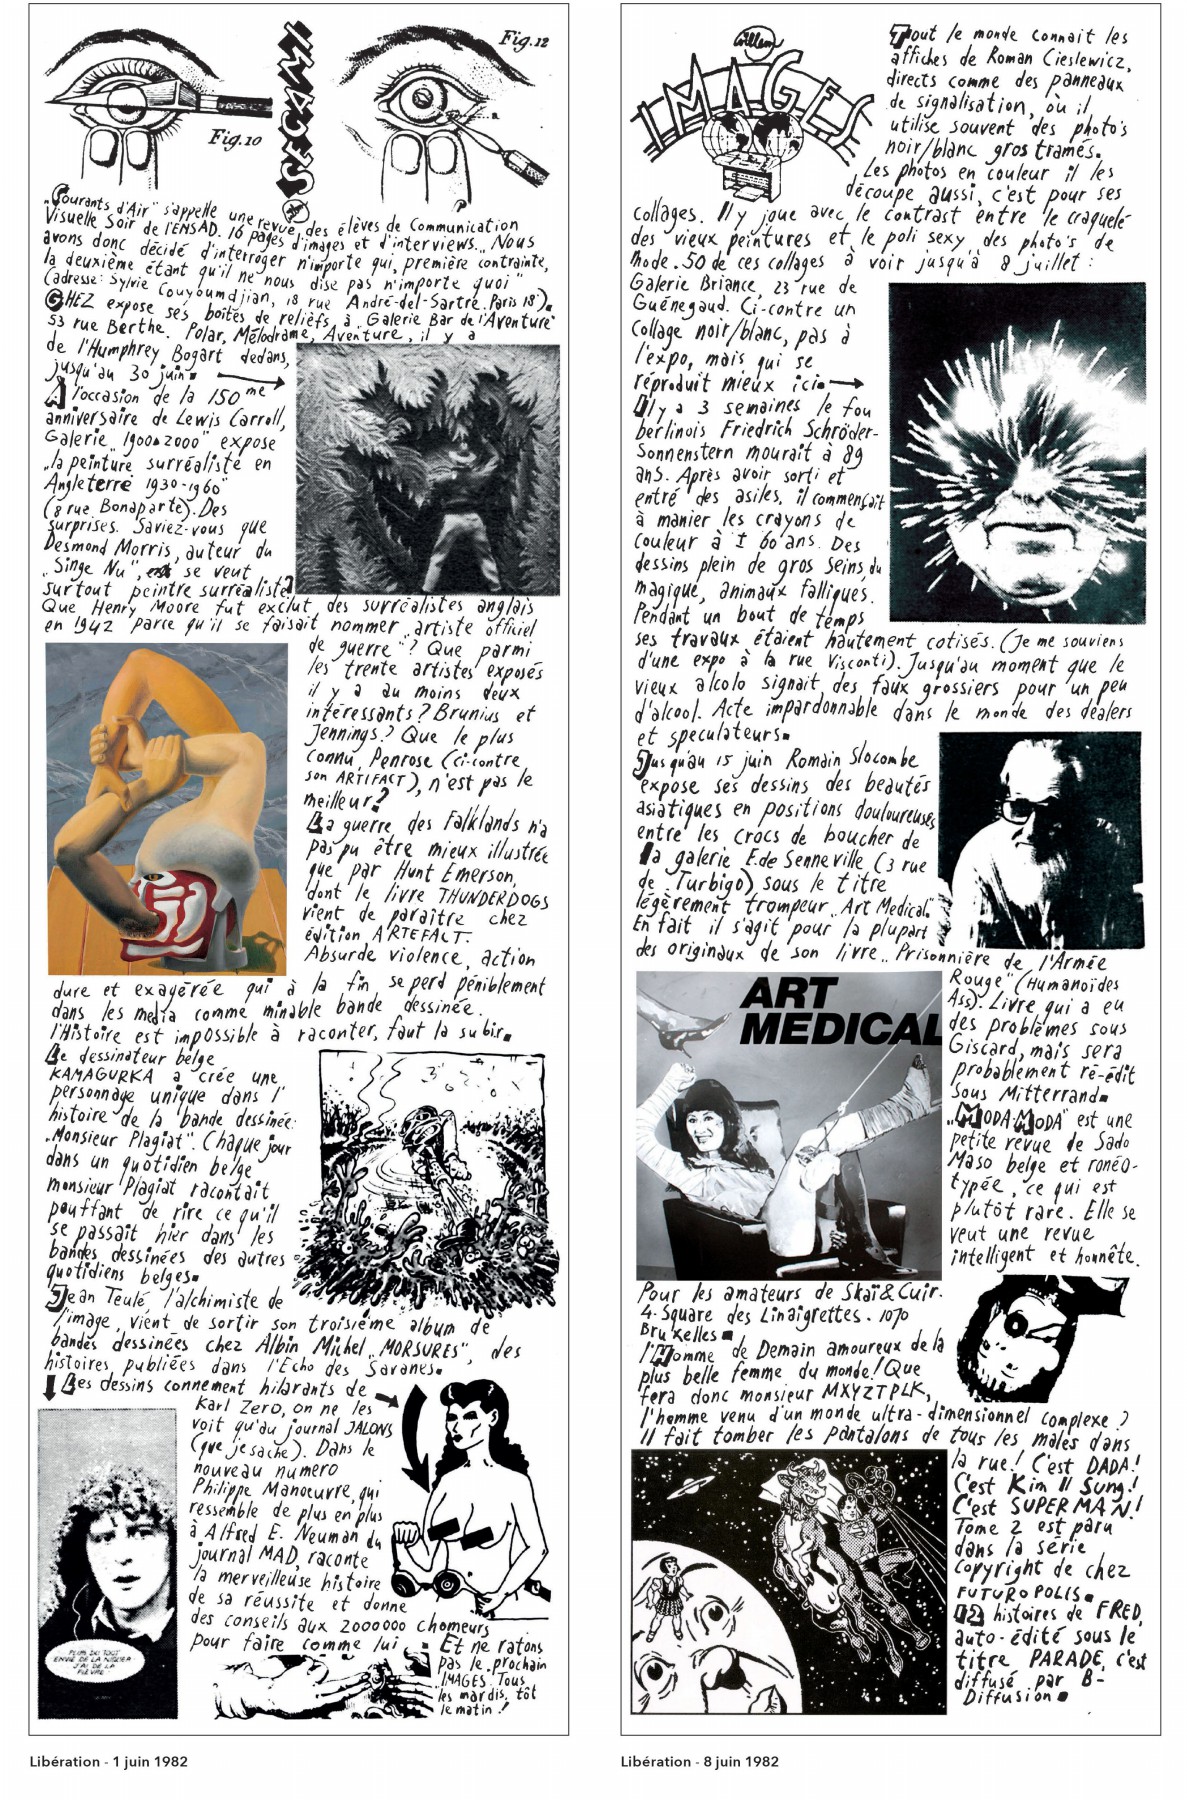 Fig.12
IMAGES
Fig.10
„Courants d'Air" s'appelle une revue des élèves de Communication
Visuelle Soir de l'ENSAD. 16 pages d'images et d'interviews. „Nous
avons donc décidé d'interroger n'importe qui, première contrainte,
la deuxième étant qu'il ne nous dise pas n'importe quoi"
(adresse: Sylvie Couyoumdjian, 18 rue André-del-Sartre. Paris 18°).
GHEZ expose ses boites de reliëfs à „Galerie Bar de l'Aventure"
53 rue Berthe. Polar, Mélodrame, Aventure, il y a
de l'Humphrey Bogart dedans,
jusqu'au 30 juin.
A l'occasion de la 150me
anniversaire de Lewis Carroll,
Galerie „1900-2000" expose
„la peinture surréaliste en
Angleterre 1930-1960"
(8 rue Bonaparte). Des
surprises. Saviez-vous que
Desmond Morris, auteur du
„Singe Nu", se veut
surtout peintre surréaliste?
Que Henry Moore fut exclut des surréalistes anglais
en 1942 parce qu'il se faisait nommer „artiste officiel
de guerre"? Que parmi
les trente artistes exposés
il y a au moins deux
intéressants? Brunius et
Jennings? Que le plus
connu, Penrose (ci-contre
son ARTIFACT), n'est pas le
meilleur?
La guerre des Falklands n'a
pas pu être mieux illustrée
que par Hunt Emerson,
dont le livre THUNDERDOGS
vient de paraître chez
édition ARTEFACT.
Absurde violence, action
dure et exagérée qui à la fin se perd péniblement
dans les media comme minable bande dessinée.
l'Histoire est impossible à raconter, faut la subir.
Le dessinateur belge
KAMAGURKA a crée une
personnage unique dans l'
histoire de la bande dessinée:
„Monsieur Plagiat". Chaque jour
dans un quotidien belge
monsieur Plagiat racontait
pouffant de rire ce qu'il
se passait hier dans les
bandes dessinées des autres
quotidiens belges.
Jean Teulé, l'alchimiste de
l'image, vient de sortir son troisième album de
bandes dessinées chez Albin Michel „MORSURES", des
histoires publiées dans l'Echo des Savanes.
Les dessins connement hilarants de
Karl Zero, on ne les
voit qu'au journal JALONS
(que je sache). Dans le
nouveau numero
Philippe Manœuvre, qui
ressemble de plus en plus
à Alfred E. Neuman du
journal MAD, raconte
la merveilleuse histoire
de sa réussite et donne
des conseils aux 2000000 chomeurs
pour faire comme lui.
PLUS DU TOUT
ENVIE DE LA NIQUER
J'AI DE LA
FIÈVRE
Et ne ratons
pas le prochain
IMAGES. Tous
les mardis, tôt
le matin!
Libération - 1 juin 1982
Willem
IMAGES
Tout le monde connait les
affiches de Roman Cieslewicz,
directs comme des panneaux
de signalisation, où il
utilise souvent des photo's
noir/blanc gros tramés.
Les photos en couleur il les
découpe aussi, c'est pour ses
collages. Il y joue avec le contrast entre le craquelé
des vieux peintures et le poli sexy des photo's de
mode. 50 de ces collages à voir jusqu'à 8 juillet:
Galerie Briance, 23 rue de
Guénegaud. Ci-contre un
collage noir/blanc, pas à
l'expo, mais qui se
réproduit mieux ici.
Il y a 3 semaines le fou
berlinois Friedrich Schröder-
Sonnenstern mourait à 89
ans. Après avoir sorti et
entré des asiles, il commençait
à manier les crayons de
couleur à ± 60 ans. Des
dessins plein de gros seins, du
magique, animaux falliques.
Pendant un bout de temps
ses travaux étaient hautement cotisés. (Je me souviens
d'une expo à la rue Visconti). Jusqu'au moment que le
vieux alcolo signait des faux grossiers pour un peu
d'alcool. Acte impardonnable dans le monde des dealers
et speculateurs.
Jusqu'au 15 juin Romain Slocombe
expose ses dessins des beautés
asiatiques en positions douloureuses
entre les crocs de boucher de
la galerie E.de Senneville (3 rue
de Turbigo), sous le titre
légèrement trompeur „Art Medical"
En fait il s'agit pour la plupart
des originaux de son livre „Prisonnière de l'Armée
Rouge" (Humanoides
Ass). Livre qui a eu
des problèmes sous
Giscard, mais sera
probablement ré-édit
sous Mitterrand.
ART
MEDICAL
„MODA-MODA" est une
petite revue de Sado
Maso belge et ronéo-
typée, ce qui est
plutôt rare. Elle se
veut une revue
intelligent et honnête.
Pour les amateurs de Skaï & Cuir.
4 Square des Linaigrettes. 1070
Bruxelles.
l'Homme de Demain amoureux de la
plus belle femme du monde! Que
fera donc monsieur MXYZTPLK,
l'homme venu d'un monde ultra-dimensionnel complexe?
Il fait tomber les pantalons de tous les males dans
la rue! C'est DADA!
C'est Kim Il Sung!
C'est SUPERMAN!
Tome 2 est paru
dans la série
Copyright de chez
FUTUROPOLIS.
12 histoires de FRED,
auto-édité sous le
titre PARADE, c'est
diffusé par B-
Diffusion.
Libération - 8 juin 1982